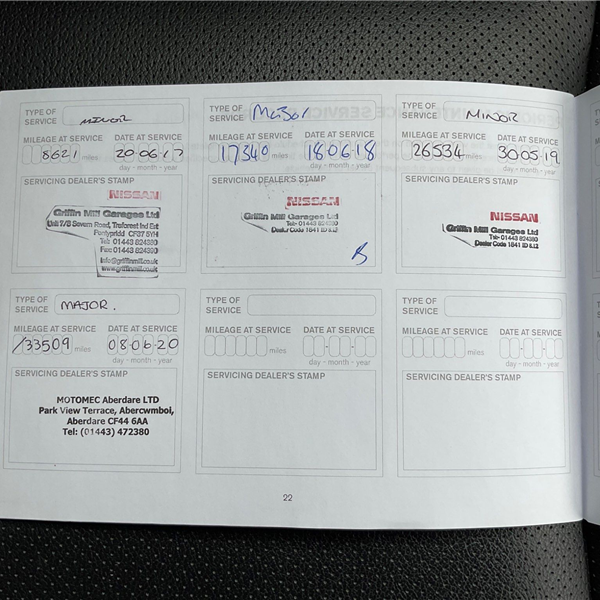 TYPE OF SERVICE MINOR
MILEAGE AT SERVICE DATE AT SERVICE
8621 miles 20 06 17
day - month - year
SERVICING DEALER'S STAMP
NISSAN
Griffin Mill Garages Ltd
Unit 7/8 Severn Road, Treforest Ind Est
Pontypridd CF37 5YH
Tel: 01443 824380
Fax: 01443 824390
info@griffinmill.co.uk
www.griffinmill.co.uk
TYPE OF SERVICE Major
MILEAGE AT SERVICE DATE AT SERVICE
17340 miles 18 06 18
day - month - year
SERVICING DEALER'S STAMP
NISSAN
Griffin Mill Garages Ltd
Tel:- 01443 824380
Dealer Code 1841
TYPE OF SERVICE MINOR
MILEAGE AT SERVICE DATE AT SERVICE
26534 miles 30 05 19
day - month - year
SERVICING DEALER'S STAMP
NISSAN
Griffin Mill Garages Ltd
Tel:- 01443 824380
Dealer Code 1841
TYPE OF SERVICE MAJOR.
MILEAGE AT SERVICE DATE AT SERVICE
/33509 miles 08 06 20
day - month - year
SERVICING DEALER'S STAMP
MOTOMEC Aberdare LTD
Park View Terrace, Abercwmboi,
Aberdare CF44 6AA
Tel: (01443) 472380
TYPE OF SERVICE
MILEAGE AT SERVICE DATE AT SERVICE
miles
day - month - year
SERVICING DEALER'S STAMP
TYPE OF SERVICE
MILEAGE AT SERVICE DATE AT SERVICE
miles
day - month - year
SERVICING DEALER'S STAMP
22